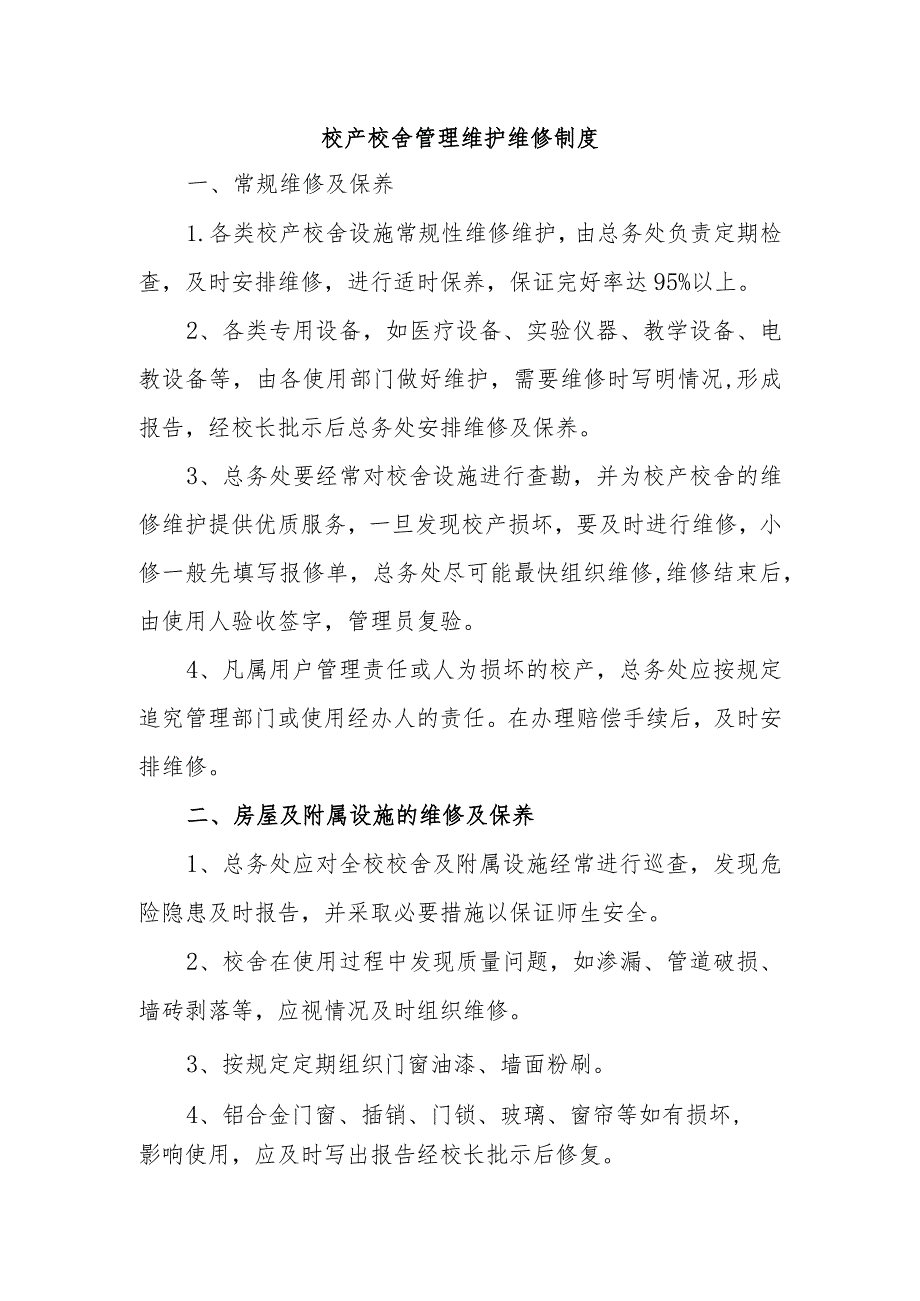 校产校舍管理维护维修制度
一、常规维修及保养
1.各类校产校舍设施常规性维修维护,由总务处负责定期检
查，及时安排维修，进行适时保养，保证完好率达 95%以上。
2、各类专用设备，如医疗设备、实验仪器、教学设备、电
教设备等，由各使用部门做好维护，需要维修时写明情况,形成
报告，经校长批示后总务处安排维修及保养。
3、总务处要经常对校舍设施进行查勘，并为校产校舍的维
修维护提供优质服务，一旦发现校产损坏，要及时进行维修，小
修一般先填写报修单，总务处尽可能最快组织维修,维修结束后，
由使用人验收签字，管理员复验。
4、凡属用户管理责任或人为损坏的校产，总务处应按规定
追究管理部门或使用经办人的责任。在办理赔偿手续后，及时安
排维修。
二、房屋及附属设施的维修及保养
1、总务处应对全校校舍及附属设施经常进行巡查，发现危
险隐患及时报告，并采取必要措施以保证师生安全。
2、校舍在使用过程中发现质量问题，如渗漏、管道破损、
墙砖剥落等，应视情况及时组织维修。
3、按规定定期组织门窗油漆、墙面粉刷。
4、铝合金门窗、插销、门锁、玻璃、窗帘等如有损坏，
影响使用，应及时写出报告经校长批示后修复。